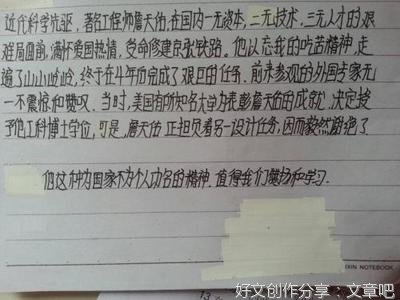 近代科学先驱，著名工程师詹天佑，在国内一无资本，二无技术，三无人才的艰
难局面前，满怀爱国热情，受命修建京张铁路。他以忘我的吃苦精神，走
遍了山山岭岭，终于在4年而完成了艰巨的任务。前来参观的外国专家无
一不震惊和赞叹。当时，美国有所知名大学为表彰詹天佑的成就，决定授
予他工科博士学位，可是，詹天佑正担负着另一设计任务，因而毅然谢绝了。
他这种为国家不为个人功名的精神，值得我们赞扬和学习。
IXIN NOTEBOOK
好文创作分享：文章吧